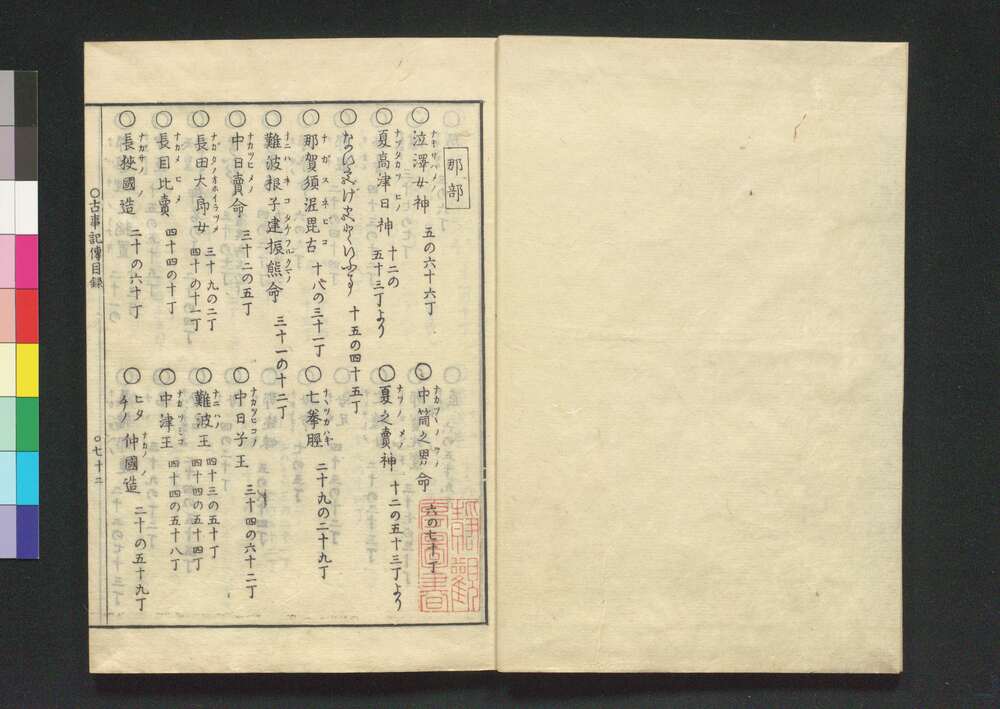 那部
○泣澤女神 五の六十六丁
○中筒之男命 六の七十丁
○夏高津日神 十二の五十三丁より
○夏之賣神 十二の五十三丁より
十五の四十五丁
○那賀須泥毘古 十八の三十一丁
○七拳脛 二十九の二十九丁
○難波根子建振熊命 三十一の十二丁
○中日賣命 三十二の五丁
○中日子王 三十四の六十二丁
○長田大郎女 三十九の二丁 四十の十一丁
○難波王 四十三の五十丁 四十四の五十四丁
○長目比賣 四十四の十丁
○中津王 四十四の五十八丁
○長狹國造 二十の六十丁
○仲國造 二十の五十九丁
○古事記傳目録
○七十二